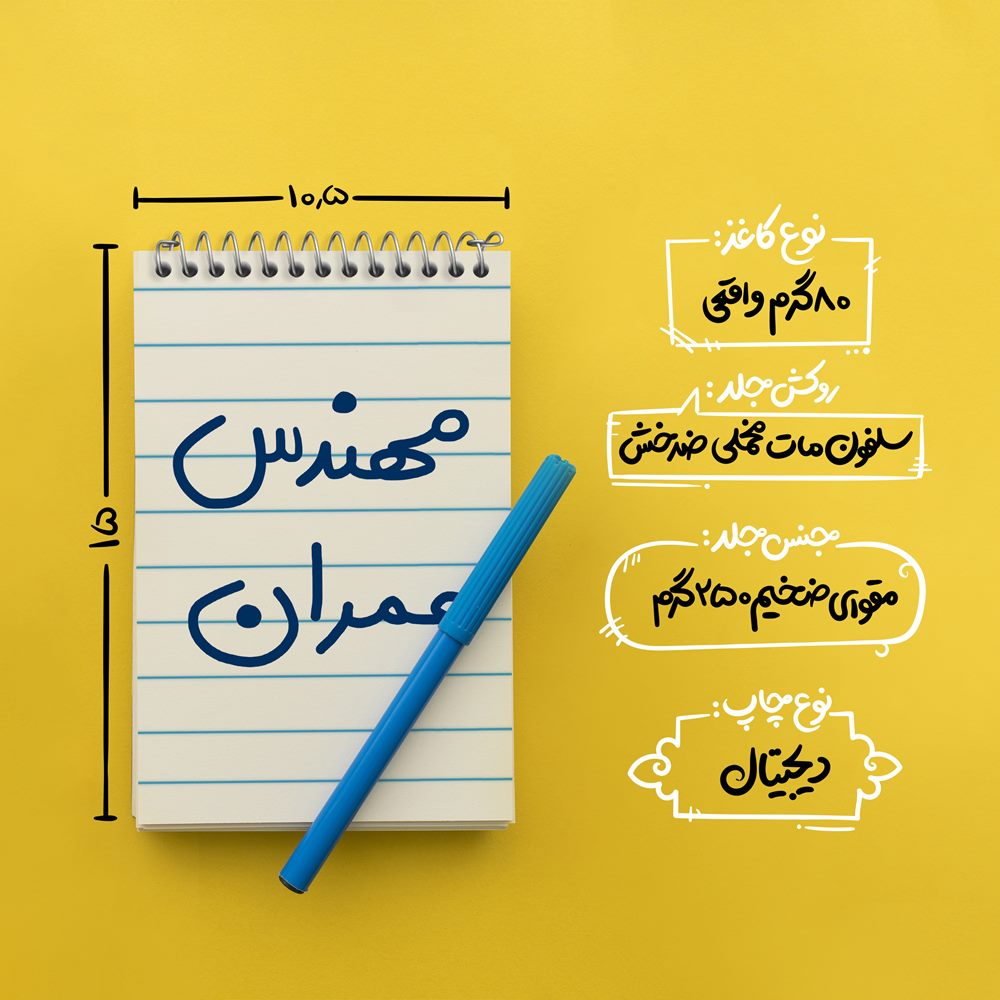 ۱۰٫۵
۱۵
مهندس
عمران
نوع کاغذ:
۸۰گرم واقعی
روکش جلد:
سلفون مات مخملی ضدخش
جنس جلد:
مقوای ضخیم ۲۵۰گرم
نوع چاپ:
دیجیتال